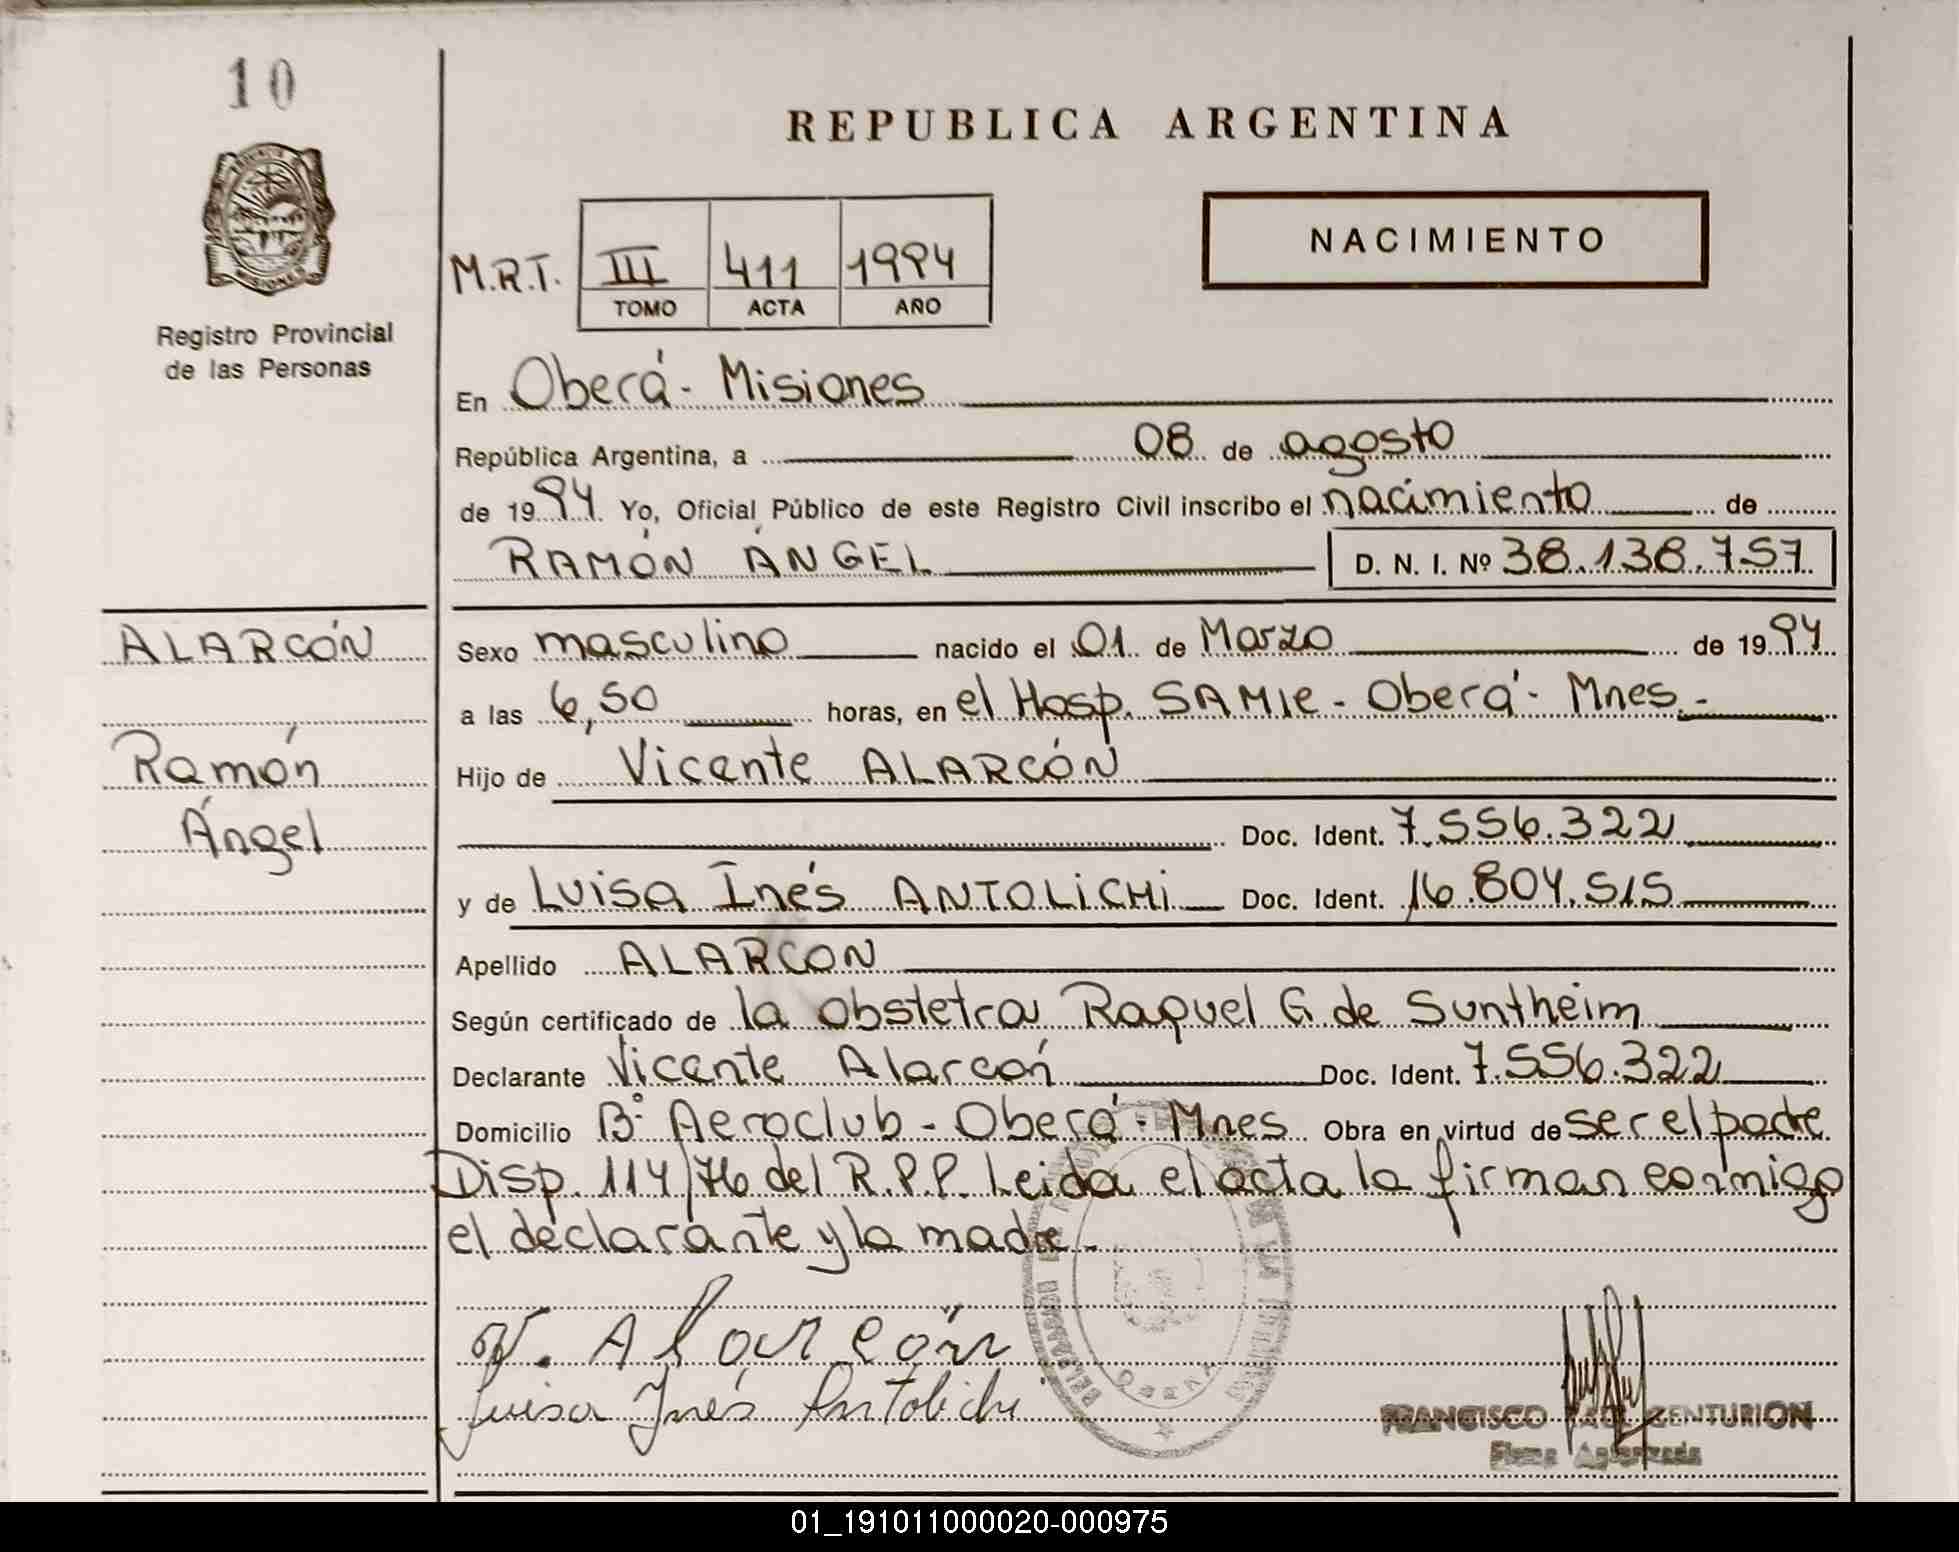 10
REPUBLICA ARGENTINA
PROVINCIA DE
MISIONES
Registro Provincial
de las Personas
NACIMIENTO
M.R.T. III 411 1994
TOMO ACTA AÑO
En Oberá - Misiones
República Argentina, a 08 de agosto
de 1994 Yo, Oficial Público de este Registro Civil inscribo el nacimiento de
RAMÓN ÁNGEL D. N. I. Nº 38.138.757
ALARCÓN
Ramón
Ángel
Sexo masculino nacido el 01 de Marzo de 1994
a las 6,50 horas, en el Hosp. SAMIe - Oberá - Mnes.-
Hijo de Vicente ALARCÓN
Doc. Ident. 7.556.322
y de Luisa Inés ANTOLiCHi Doc. Ident. 16.804.515
Apellido ALARCON
Según certificado de la obstetra Raquel G. de Suntheim
Declarante Vicente Alarcón Doc. Ident. 7.556.322
Domicilio Bº Aeroclub - Oberá - Mnes Obra en virtud de ser el padre
Disp. 114/76 del R.P.P. Leida el acta la firman conmigo
el declarante y la madre.-
V. Alarcón
Luisa Inés Antolichi
OBERA
FRANCISCO RAUL CENTURION
Firma Autorizada
01_191011000020-000975